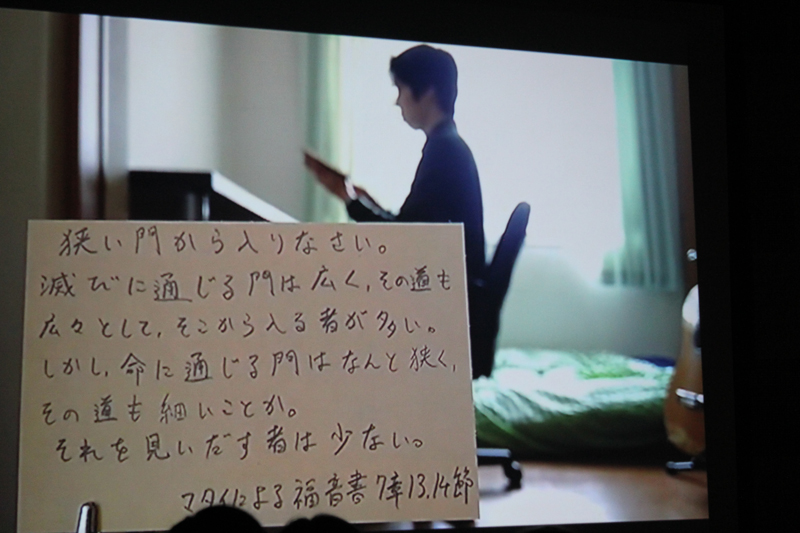 狭い門から入りなさい。
滅びに通じる門は広く,その道も
広々として,そこから入る者が多い。
しかし,命に通じる門はなんと狭く,
その道も細いことか。
それを見いだす者は少ない。
マタイによる福音書 7章13.14節